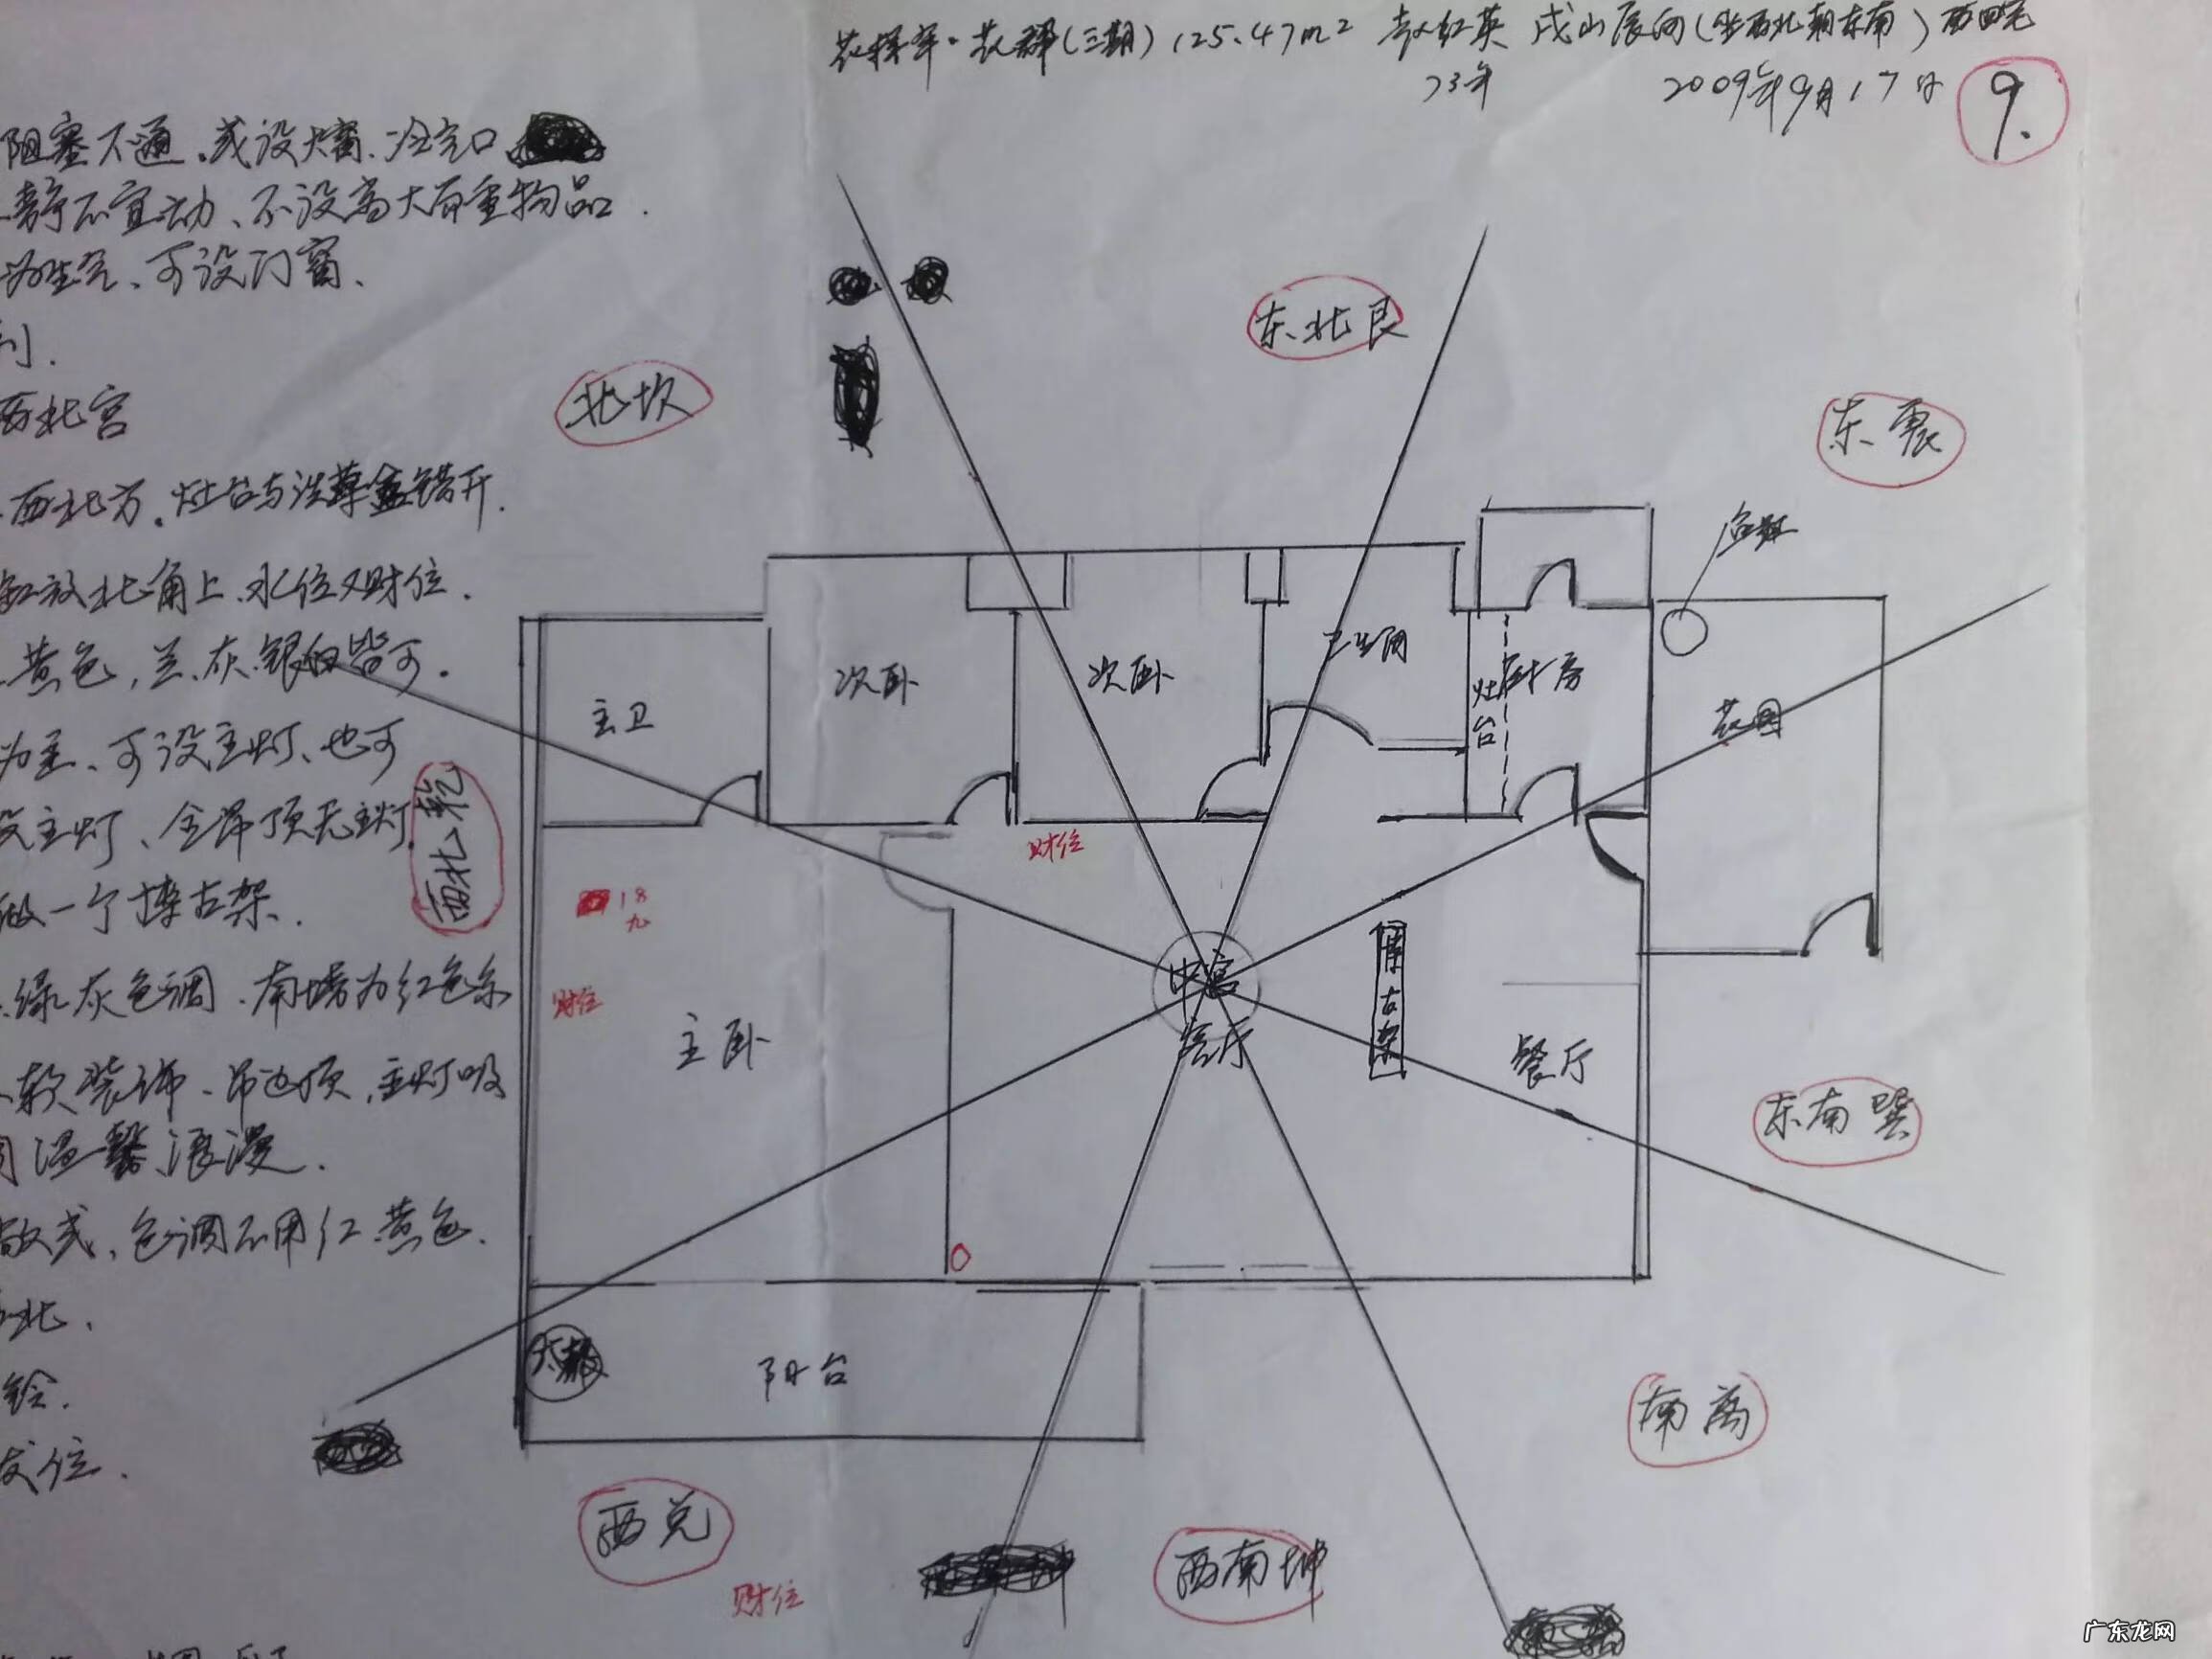 (三期) 125.47m² 红英 戌山辰向(坐西北朝东南) 西四宅
73年 2009年9月17日
9.
阻塞不通.或设煤窗.冷气口
静不宜动、不设高大而重物品.
为生气、可设门窗、
西北宫
西北方.灶台与洗菜盆错开.
缸放北角上.水位又财位.
黄色,兰.灰.银白皆可.
为主、可设主灯、也可
设主灯、全吊顶无主灯.
做一个博古架、
绿灰色调.南墙为红色系
软装饰.吊边顶,主灯吸
温馨浪漫.
敞式、色调不用红.黄色.
北、
铃.
位.
北坎
东北艮
东震
鱼缸
主卫
次卧
次卧
卫生间
灶台
厨房
花园
西北乾
财位
18
九
财位
主卧
中宫
客厅
博古架
餐厅
东南巽
阳台
南离
西兑
财位
西南坤
广东龙网